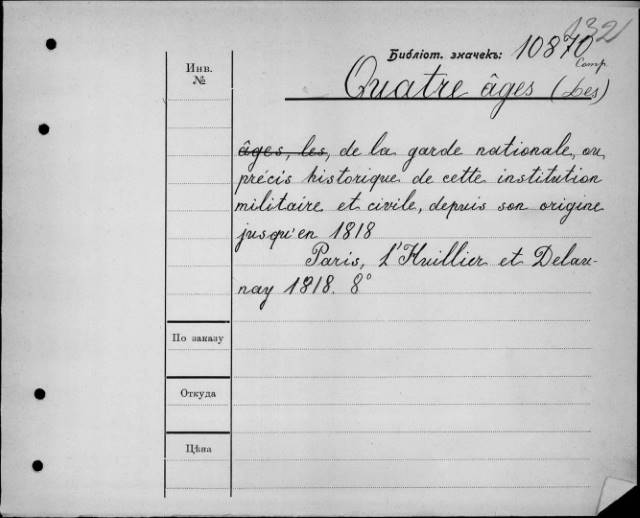 132
Библіот. значекъ: 10870
Comp.
Инв.
№
Quatre âges (Les)
âges, les, de la garde nationale, ou
précis historique de cette institution
militaire et civile, depuis son origine
jusqu'en 1818
Paris, L'Huillier et Delau-
nay 1818. 8°
По заказу
Откуда
Цѣна